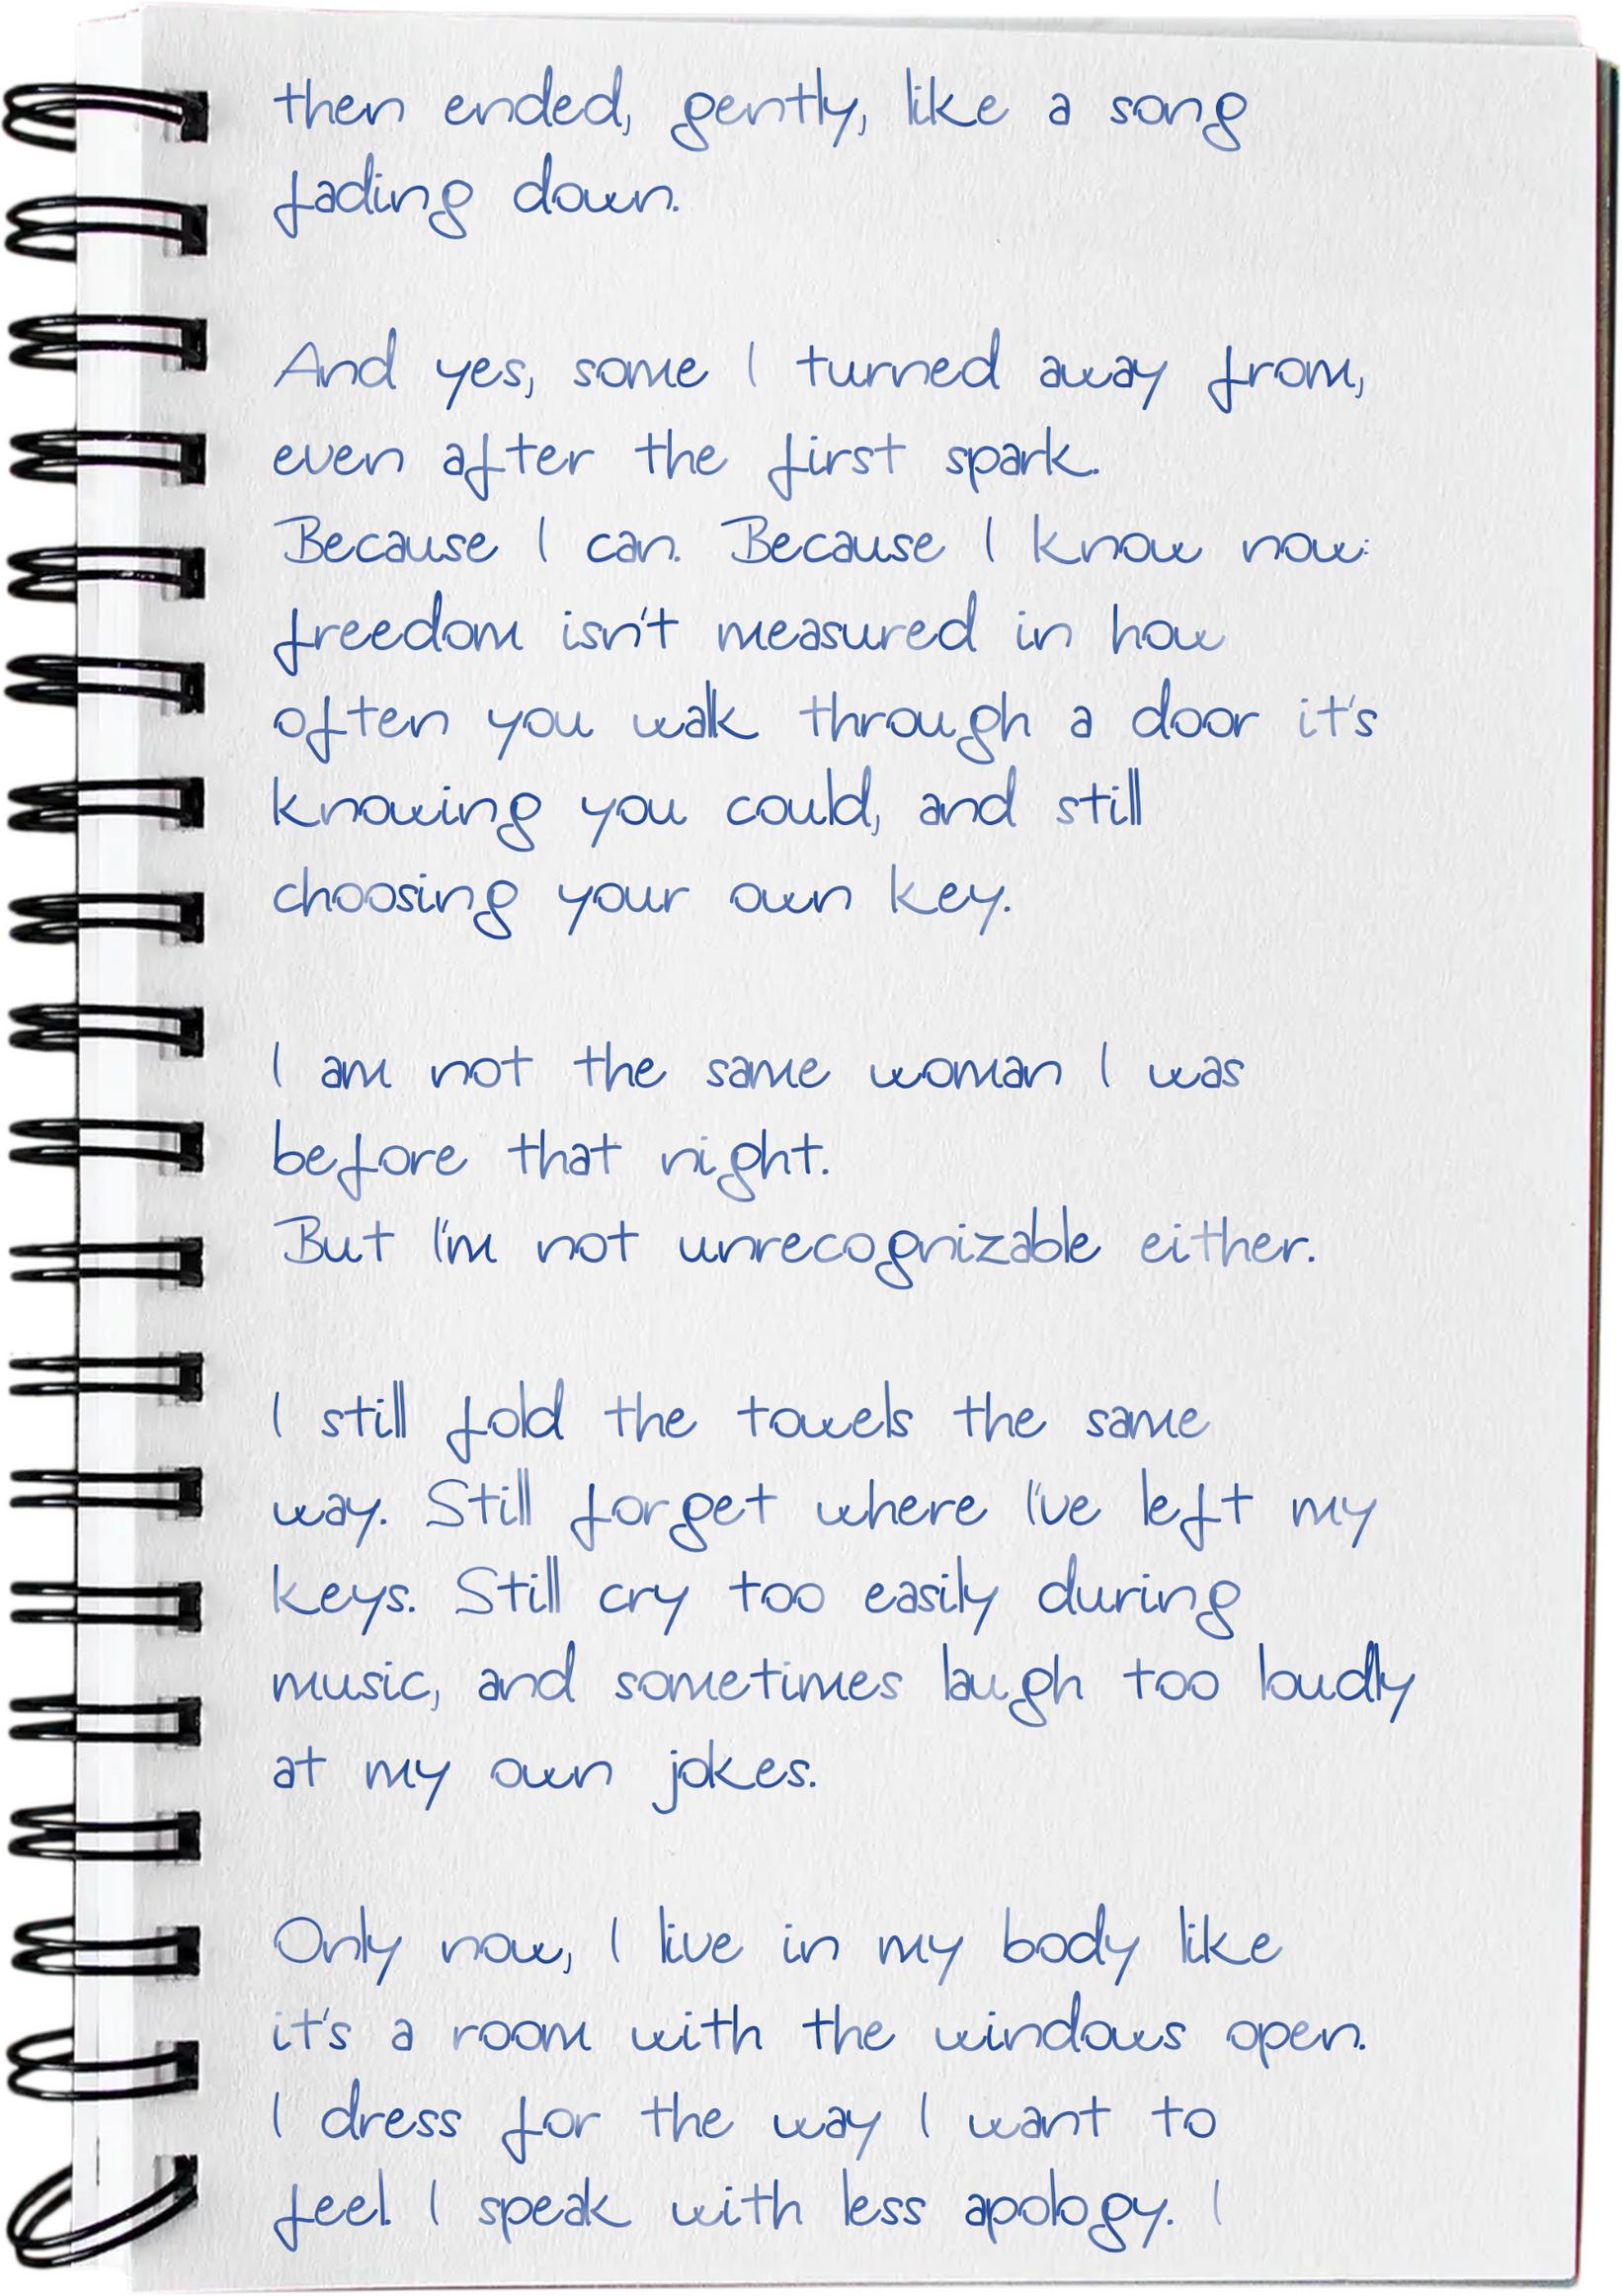 then ended, gently, like a song
fading down.
And yes, some I turned away from,
even after the first spark.
Because I can. Because I know now:
freedom isn't measured in how
often you walk through a door it's
knowing you could, and still
choosing your own key.
I am not the same woman I was
before that night.
But I'm not unrecognizable either.
I still fold the towels the same
way. Still forget where I've left my
keys. Still cry too easily during
music, and sometimes laugh too loudly
at my own jokes.
Only now, I live in my body like
it's a room with the windows open.
I dress for the way I want to
feel. I speak with less apology. I